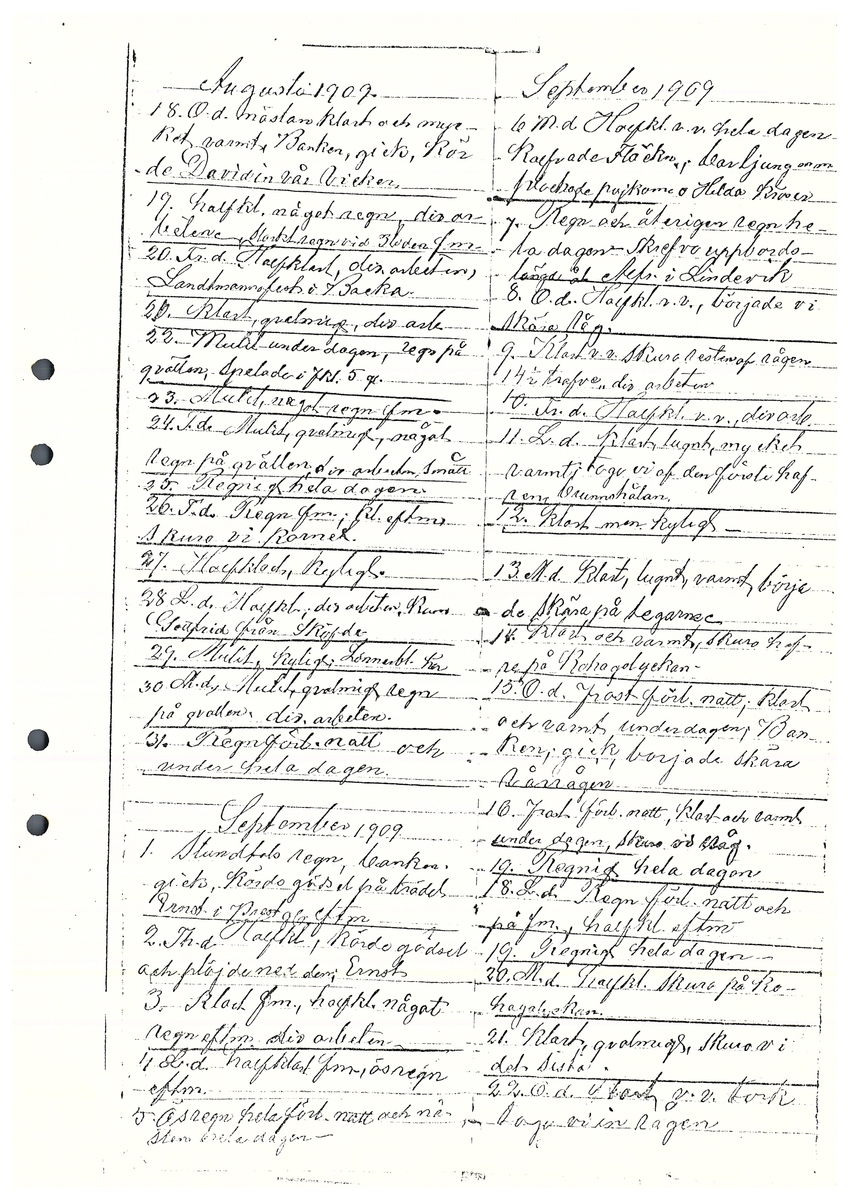 Augusti 1909.
18. O.d. nästan klart och myc-
ket varmt, Banken, gick, kör
de David in vår Vicker.
19. halfkl. något regn, div ar-
betene, starkt regn vid 3 tiden fm.
20. Fr.d. Halfklart, div arbeten,
Landtmannafest i Backa.
21. Klart, qvalmig, div arb.
22. Mulet under dagen, regn på
qvällen, Spelade i fkl. 5
23. Mulet, något regn fm.
24. T.d. Mulit, qvalmigt, något
regn på qvällen, div arbeten, smått
25. Regnig hela dagen.
26. T.d. Regn fm; kl. eftm
skuro vi kornet.
27. Halfklart, kyligt.
28 L.d. Halfkl, div arbeten,
Gottfrid från Sköfde
29. Mulit, kylig,
30 M.d, Mulit, qvalmigt regn
på qvällen. div. arbeten.
31. Regn förl. natt och
under hela dagen.
September 1909
1. Stundtals regn, banken.
gick, körde gödsel på trädet
Ernst i Prest eftm
2. Th.d Halfkl, körde gödsel
och plöjde ned den; Ernst
3. Klart fm, halfkl. något
regn eftm div arbeten
4 L.d. halfklart fm, ösregn
eftm.
5. Ösregn hela förl. natt och nä-
stan hela dagen
September 1909
6 M.d Halfkl. v.v. hela dagen
plockade pojkarne o Hilda
7. Regn och återigen regn he-
la dagen skrefvo uppbörds-
längd åt i Lindevik
8. O.d. Halfkl. v.v., började vi
skära råg.
9. Klart v.v. skuro resten af rågen
14 i trafve, div arbeten
10. Fr.d. Halfkl. v.v., div arb.
11. L.d. Klart, lugnt, mycket
varmt; togo vi af den förste haf-
ren, Brunnshålan.
12. Klart men kyligt
13. M.d. Klart, lugnt, varmt, börja
de skära på
14. Klart och varmt, skuro haf-
re på Kohagalyckan
15. O.d. frost förl. natt; klart
och varmt under dagen; Ban-
ken; gick, började skära
vårrågen
16. frost förl. natt, klart och varmt
under dagen, skuro vi råg.
19. Regnig hela dagen
18. L.d. Regn förl. natt och
på fm., halfkl. eftm
19. Regnig hela dagen
20. M.d. Halfkl. skuro på Ko-
hagalyckan.
21. Klart, qvalmigt, skuro vi
det sista.
22. O.d. v.v. tork
togo vi in rågen